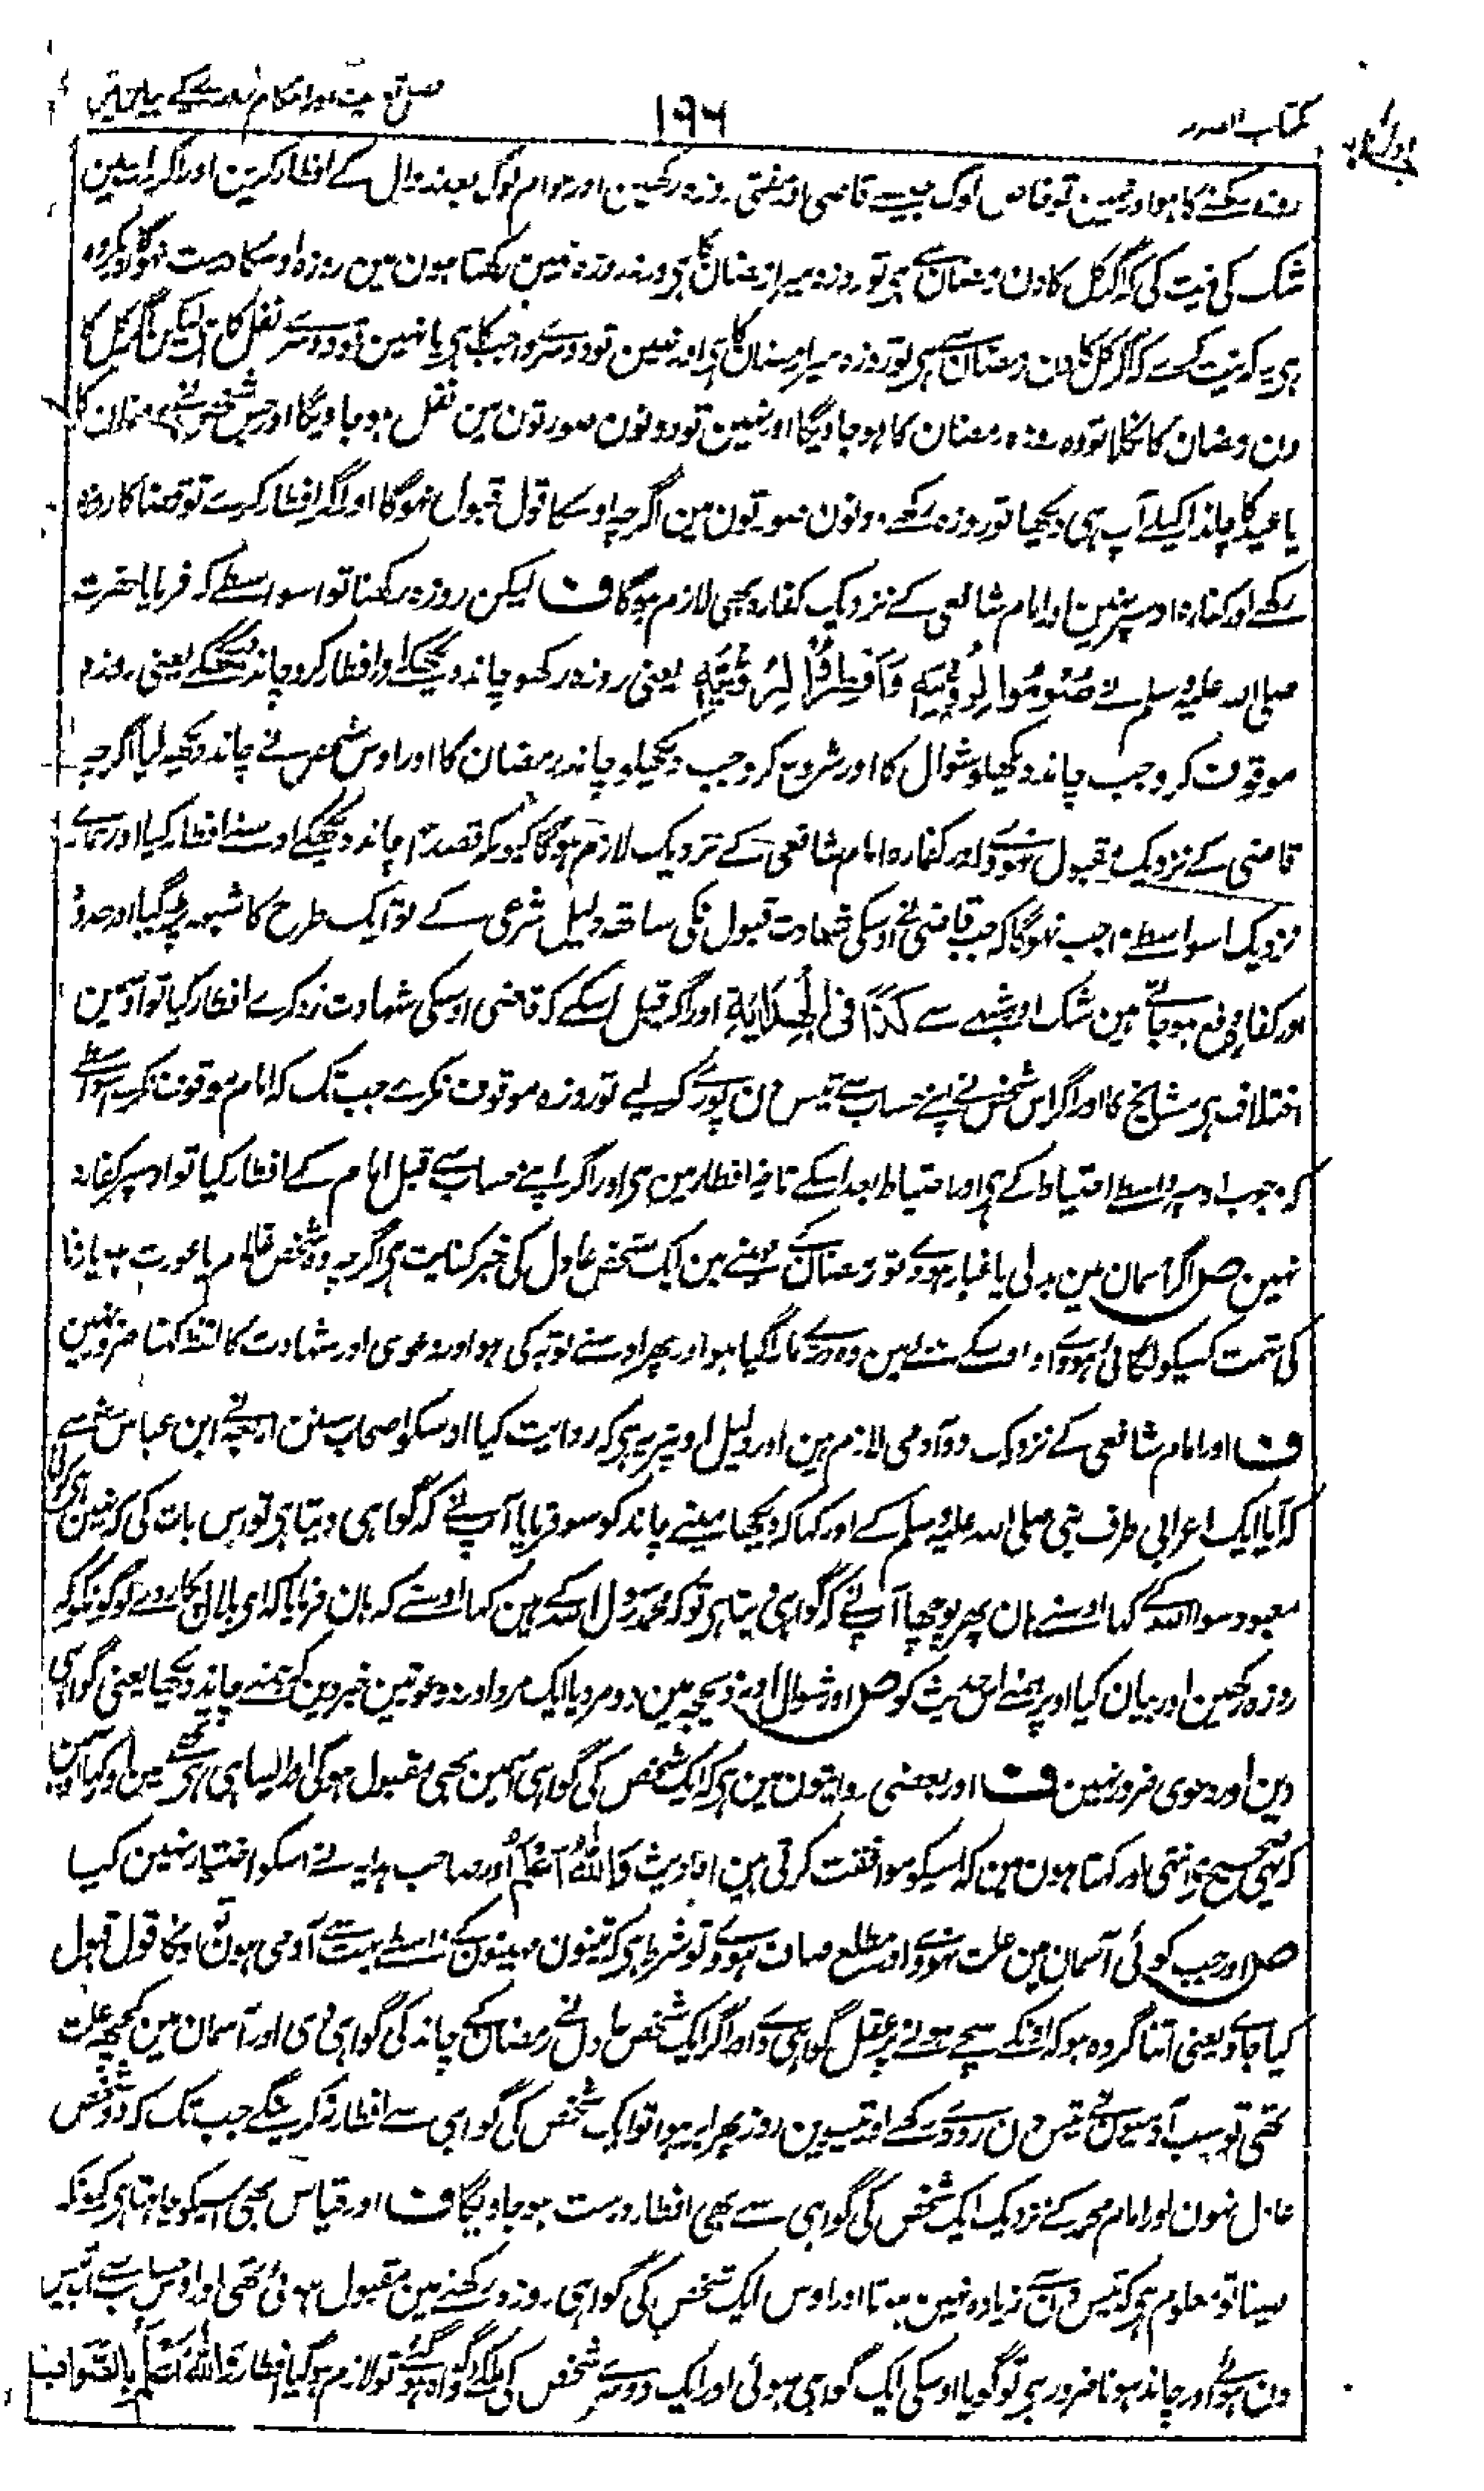 کتاب الصوم
۱۹۶
روزہ رکھنے کا ہوا اور نہین تو خاص لوگ جیسے قاضی اور مفتی روزہ رکھین اور عوام لوگ بعد زوال کے افطار کرین اور اگر اسمین
شک کی نیت کی کہ اگر کل کا دن رمضان سے ہی تو روزہ میرا رمضان کا ہی ورنہ روزہ نہین رکھتا ہون مین روزہ اوسکا درست نہوگا اور مکروہ
ہی یہ کہ نیت کرے کہ اگر کل کا دن رمضان سے ہی تو روزہ میرا رمضان کا ہی اور نہین تو دوسرے واجب کا ہی یا نہین تو دوسرے نفل کا ہی لیکن اگر کل کا
دن رمضان کا نکلا تو وہ روزہ رمضان کا ہوجاویگا اور نہین تو دونون صورتون مین نفل ہوجاویگا اور جس شخص نے رمضان کا
یا عید کا چاند اکیلے آپ ہی دیکھا تو روزہ رکھے دونون صورتون مین اگرچہ اوسکا قول قبول نہوگا اور اگر افطار کرے تو قضا کا روزہ
رکھے اور کفارہ اوسپر نہین اور امام شافعی کے نزدیک کفارہ بھی لازم ہوگا ف لیکن روزہ رکھنا تو اسواسطے کہ فرمایا حضرت
صلی اللہ علیہ وسلم نے صُوْمُوا لِرُؤْيَتِهِ وَاَفْطِرُوْا لِرُؤْيَتِهِ یعنی روزہ رکھو چاند دیکھکے اور افطار کرو چاند دیکھکے یعنی روزہ
موقوف کرو جب چاند دیکھ لو شوال کا اور شروع کرو جب دیکھ لو چاند رمضان کا اور اوس شخص نے چاند دیکھ لیا اگرچہ
قاضی کے نزدیک مقبول نہووے اور کفارہ امام شافعی کے نزدیک لازم ہوگا کیونکہ قصداً چاند دیکھکے اوسنے افطار کیا اور ہمارے
نزدیک اسواسطے واجب نہوگا کہ جب قاضی نے اوسکی شہادت قبول نکی ساتھ دلیل شرعی کے تو ایک طرح کا شبہہ پڑگیا اور حدود
اور کفارے دفع ہوجاتے ہین شک اور شبہے سے كَذَا فِی الْهِدَايَةِ اور اگر قبل اسکے کہ قاضی اوسکی شہادت رد کرے افطار کیا تو اوسمین
اختلاف ہی مشایخ کا اور اگر اس شخص نے اپنے حساب سے تیس دن پورے کر لیے تو روزہ موقوف نکرے جب تک کہ امام موقوف نکرے اسواسطے
کہ وجوب اوسپر واسطے احتیاط کے ہی اور احتیاط بعد اسکے تاخیر افطار مین ہی اور اگر اپنے حساب سے قبل امام کے افطار کیا تو اوسپر کفارہ
نہین ص اگر آسمان مین بدلی یا غبار ہووے تو رمضان کے مہینے مین ایک شخص عادل کی خبر کفایت ہی اگرچہ وہ شخص غلام یا عورت ہو یا زنا
کی تہمت کسیکو لگائی ہووے اور اوسکے سبب مین وہ درے مارا گیا ہو اور پھر اوسنے توبہ کی ہو اور دعوی اور شہادت کا لفظ کہنا ضرور نہین
ف اور امام شافعی کے نزدیک دو آدمی لازم ہین اور دلیل اوپر یہ ہی کہ روایت کیا اوسکو اصحاب سنن اربعہ نے ابن عباس سے
کہ آیا ایک اعرابی طرف نبی صلی اللہ علیہ وسلم کے اور کہا کہ دیکھا مینے چاند کو سو فرمایا آپ نے کہ گواہی دیتا ہی تو اس بات کی کہ نہین ہی کوئی
معبود سوا اللہ کے کہا اوسنے ہان پھر پوچھا آپ نے کہ گواہی دیتا ہی تو کہ محمد رسول اللہ کے ہین کہا اوسنے کہ ہان فرمایا کہ ای بلال پکار دے لوگونکو کہ
روزہ رکھین اور بیان کیا اوپر ہمنے اس حدیث کو ص اور شوال اور ذیحجہ مین دو مرد یا ایک مرد اور دو عورتین خبر دین کہ ہمنے چاند دیکھا یعنی گواہی
دین اور دعوی ضرور نہین ف اور بعضی روایتون مین ہی کہ ایک شخص کی گواہی اسمین بھی مقبول ہوگی اور ایسا ہی
کہ یہی صحیح ہی انتہی اور کہتا ہون مین کہ اسیکو موافقت کرتی ہین احادیث وَاللّٰهُ اَعْلَمُ اور صاحب ہدایہ نے اسکو اختیار نہین کیا
ص اور جب کوئی آسمان مین علت نہووے اور مطلع صاف ہووے تو شرط ہی کہ تینون مہینون کے واسطے بہت سے آدمی ہون تو اونکا قول قبول
کیا جاوے یعنی اتنا گروہ ہو کہ اونکے سچے ہونے پر عقل گواہی دے اور اگر ایک شخص عادل نے رمضان کے چاند کی گواہی دی اور آسمان مین کچھ علت
تھی تو سب آدمیون نے تیس دن روزے رکھے اور تیسوین روز پھر ابر ہوا تو ایک شخص کی گواہی سے افطار نہ کرینگے جب تک کہ دو شخص
عادل نہون اور امام محمد کے نزدیک ایک شخص کی گواہی سے بھی افطار درست ہوجاویگا ف اور قیاس بھی اسیکو چاہتا ہی کیونکہ
مہینا تو معلوم ہی کہ تیس دن سے زیادہ نہین ہوتا اور اوس ایک شخص کی گواہی روزہ رکھنے مین مقبول ہوئی تھی اور اوس حساب سے تیس
دن ہوئے اور چاند ہونا ضرور ہی تو گویا اوسکی ایک گواہی ہوئی اور ایک دوسرے شخص کی ملکے دو گواہ ہوگئے تو لازم ہوگیا افطار وَاللّٰهُ اَعْلَمُ بِالصَّوَابِ